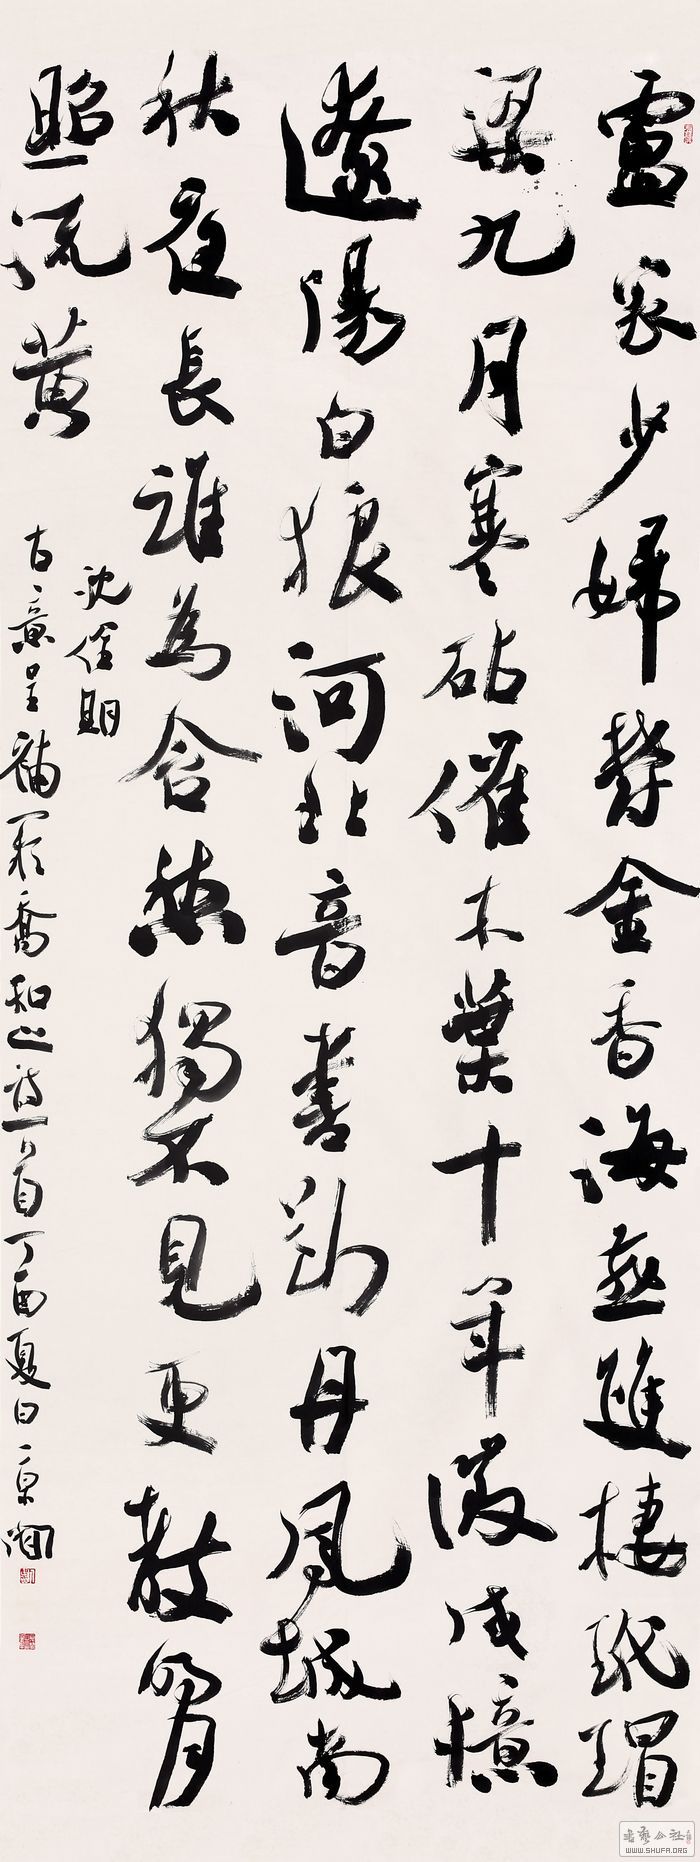 盧家少婦鬱金香海燕雙棲玳瑁
梁九月寒砧催木葉十年徵戍憶
遼陽白狼河北音書斷丹鳳城南
秋夜長誰為含愁獨不見更教明月
照流黃
沈佺期
古意呈補闕喬知之詩一首丁酉夏日
書藝公社
WWW.SHUFA.ORG